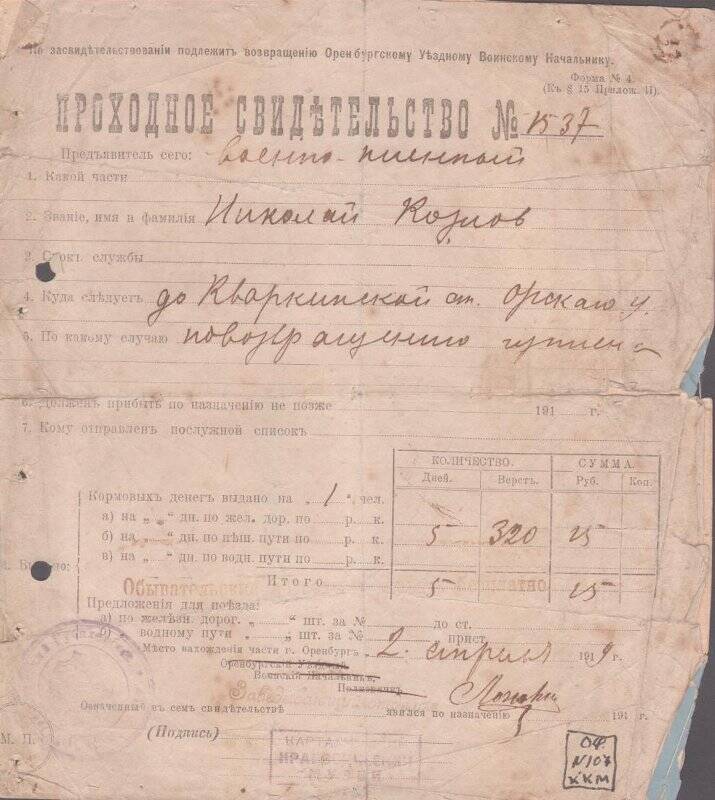 По засвидѣтельствованіи подлежитъ возвращенію Оренбургскому Уѣздному Воинскому Начальнику.
Форма № 4
(Къ § 15 Прилож. II).
ПРОХОДНОЕ СВИДѢТЕЛЬСТВО № 1537
Предъявитель сего: военно-пленный
1. Какой части
2. Званіе, имя и фамилія Николай Козлов
3. Срокъ службы
4. Куда слѣдуетъ до Кваркинской ст. Орскаго у.
5. По какому случаю по возвращению из плена
6. Долженъ прибыть по назначенію не позже 191 г.
7. Кому отправленъ послужной списокъ
КОЛИЧЕСТВО. СУММА.
Дней. Верстъ. Руб. Коп.
Кормовыхъ денегъ выдано на „ 1 “ чел.
а) на „ „ “ дн. по жел. дор. по р. к.
б) на „ „ “ дн. по пѣш. пути по р. к. 5 320 15
в) на „ „ “ дн. по водн. пути по р. к.
Итого 5 15
Обывательск бесплатно
Предложенія для поѣзда:
а) по желѣзн. дорог. „ “ шт. за № до ст.
б) водному пути „ „ шт. за № прист.
Мѣсто нахожденія части г. Оренбургъ 2 апреля 1919 г.
Оренбургскій Уѣздный
Воинскій Начальникъ,
Полковникъ
Означенный въ семъ свидѣтельствѣ явился по назначенію 191 г.
М. П. (Подпись)
КРАЕВЕДЧЕСКИЙ
МУЗЕЙ
ОФ
N107
ККМ